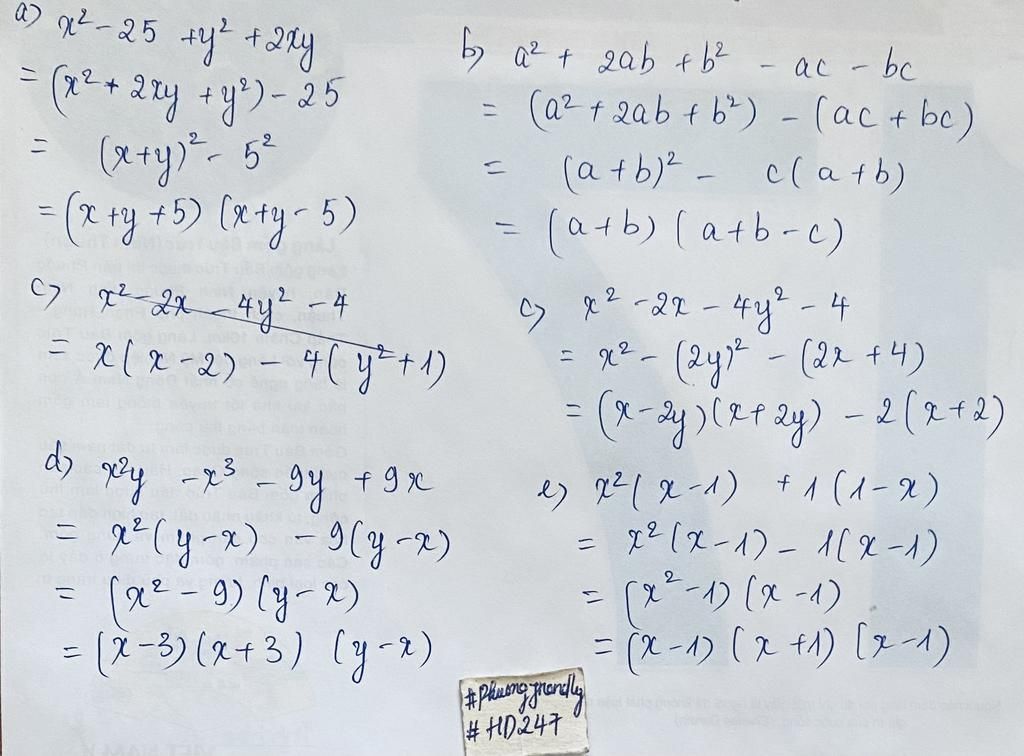 a) x² - 25 + y² + 2xy
= (x² + 2xy + y²) - 25
= (x+y)² - 5²
= (x+y+5) (x+y-5)
b) a² + 2ab + b² - ac - bc
= (a² + 2ab + b²) - (ac + bc)
= (a+b)² - c(a+b)
= (a+b) (a+b-c)
c) x² - 2x - 4y² - 4
= x(x-2) - 4(y²+1)
c) x² - 2x - 4y² - 4
= x² - (2y)² - (2x+4)
= (x-2y)(x+2y) - 2(x+2)
d) x²y - x³ - 9y + 9x
= x²(y-x) - 9(y-x)
= (x²-9) (y-x)
= (x-3)(x+3) (y-x)
e) x²(x-1) + 1(1-x)
= x²(x-1) - 1(x-1)
= (x²-1) (x-1)
= (x-1) (x+1) (x-1)
#HD247